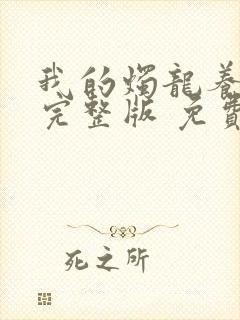 我的燭龍養
完整版 免費
死之所